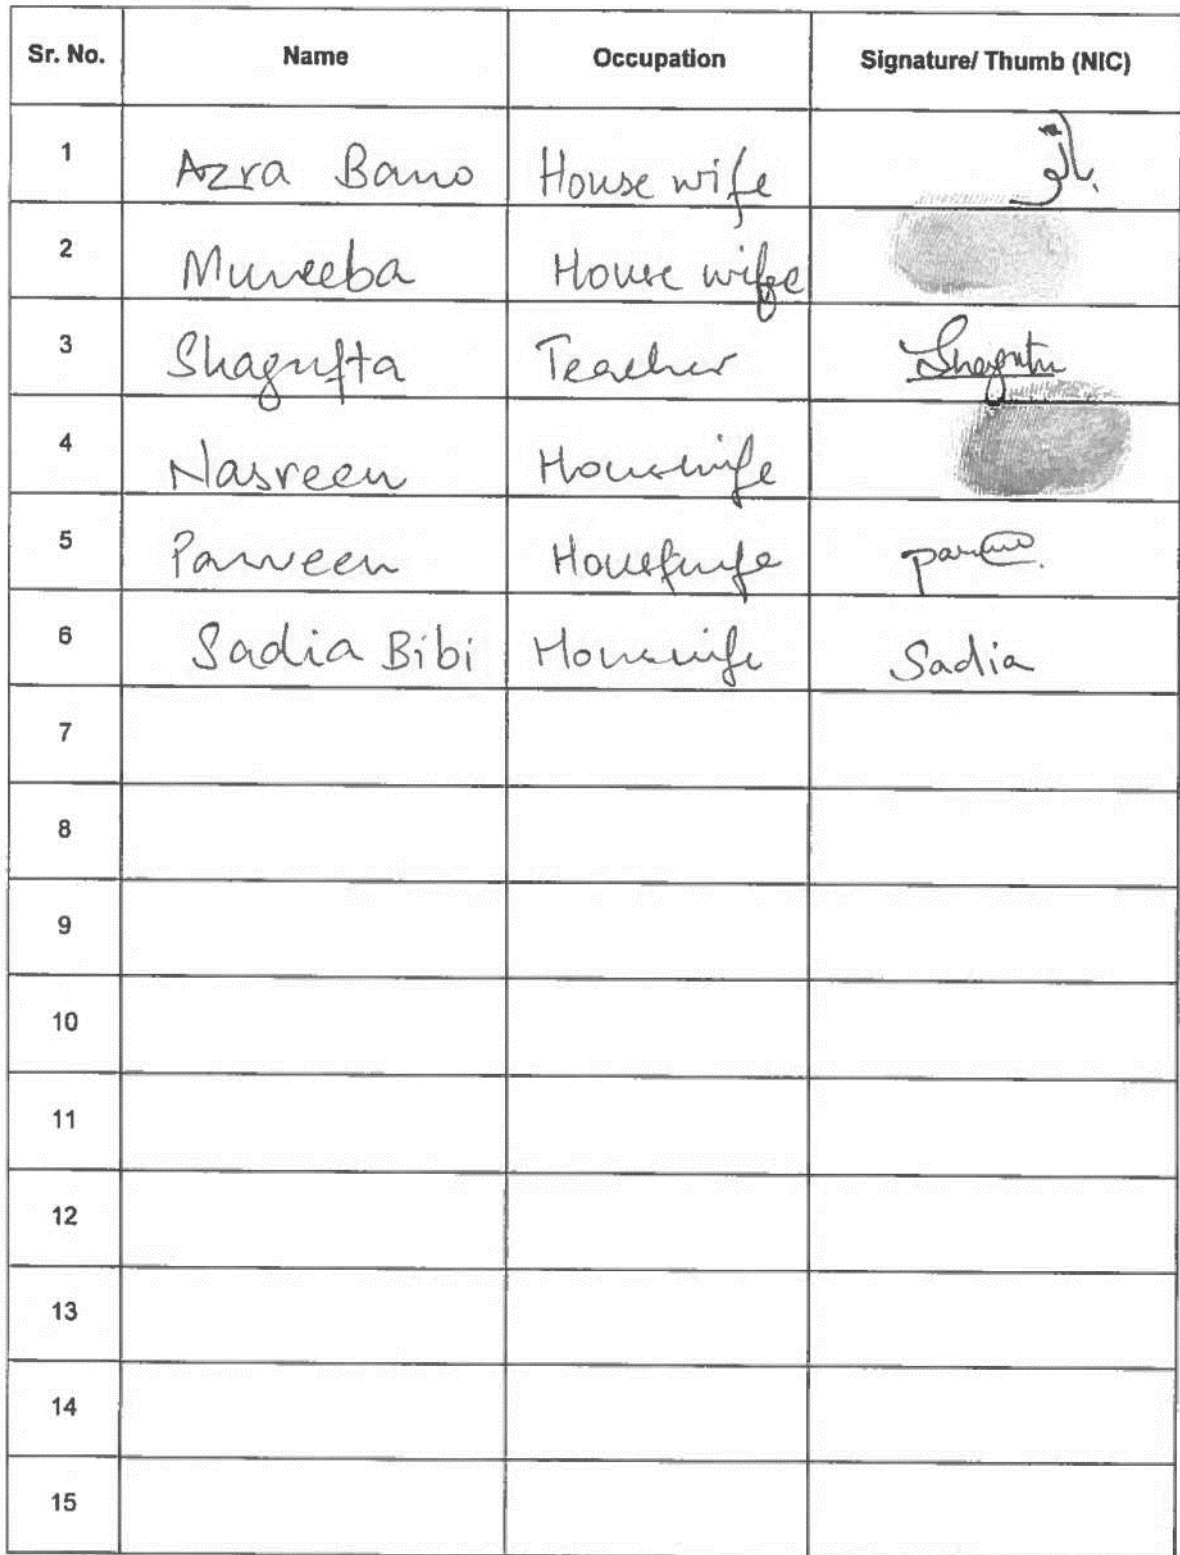 Sr. No. Name Occupation Signature/ Thumb (NIC)
1 Azra Bano House wife بانو
2 Muneeba House wife
3 Shagufta Teacher Shagufta
4 Nasreen Housewife
5 Parveen Housewife
6 Sadia Bibi Housewife Sadia
7
8
9
10
11
12
13
14
15